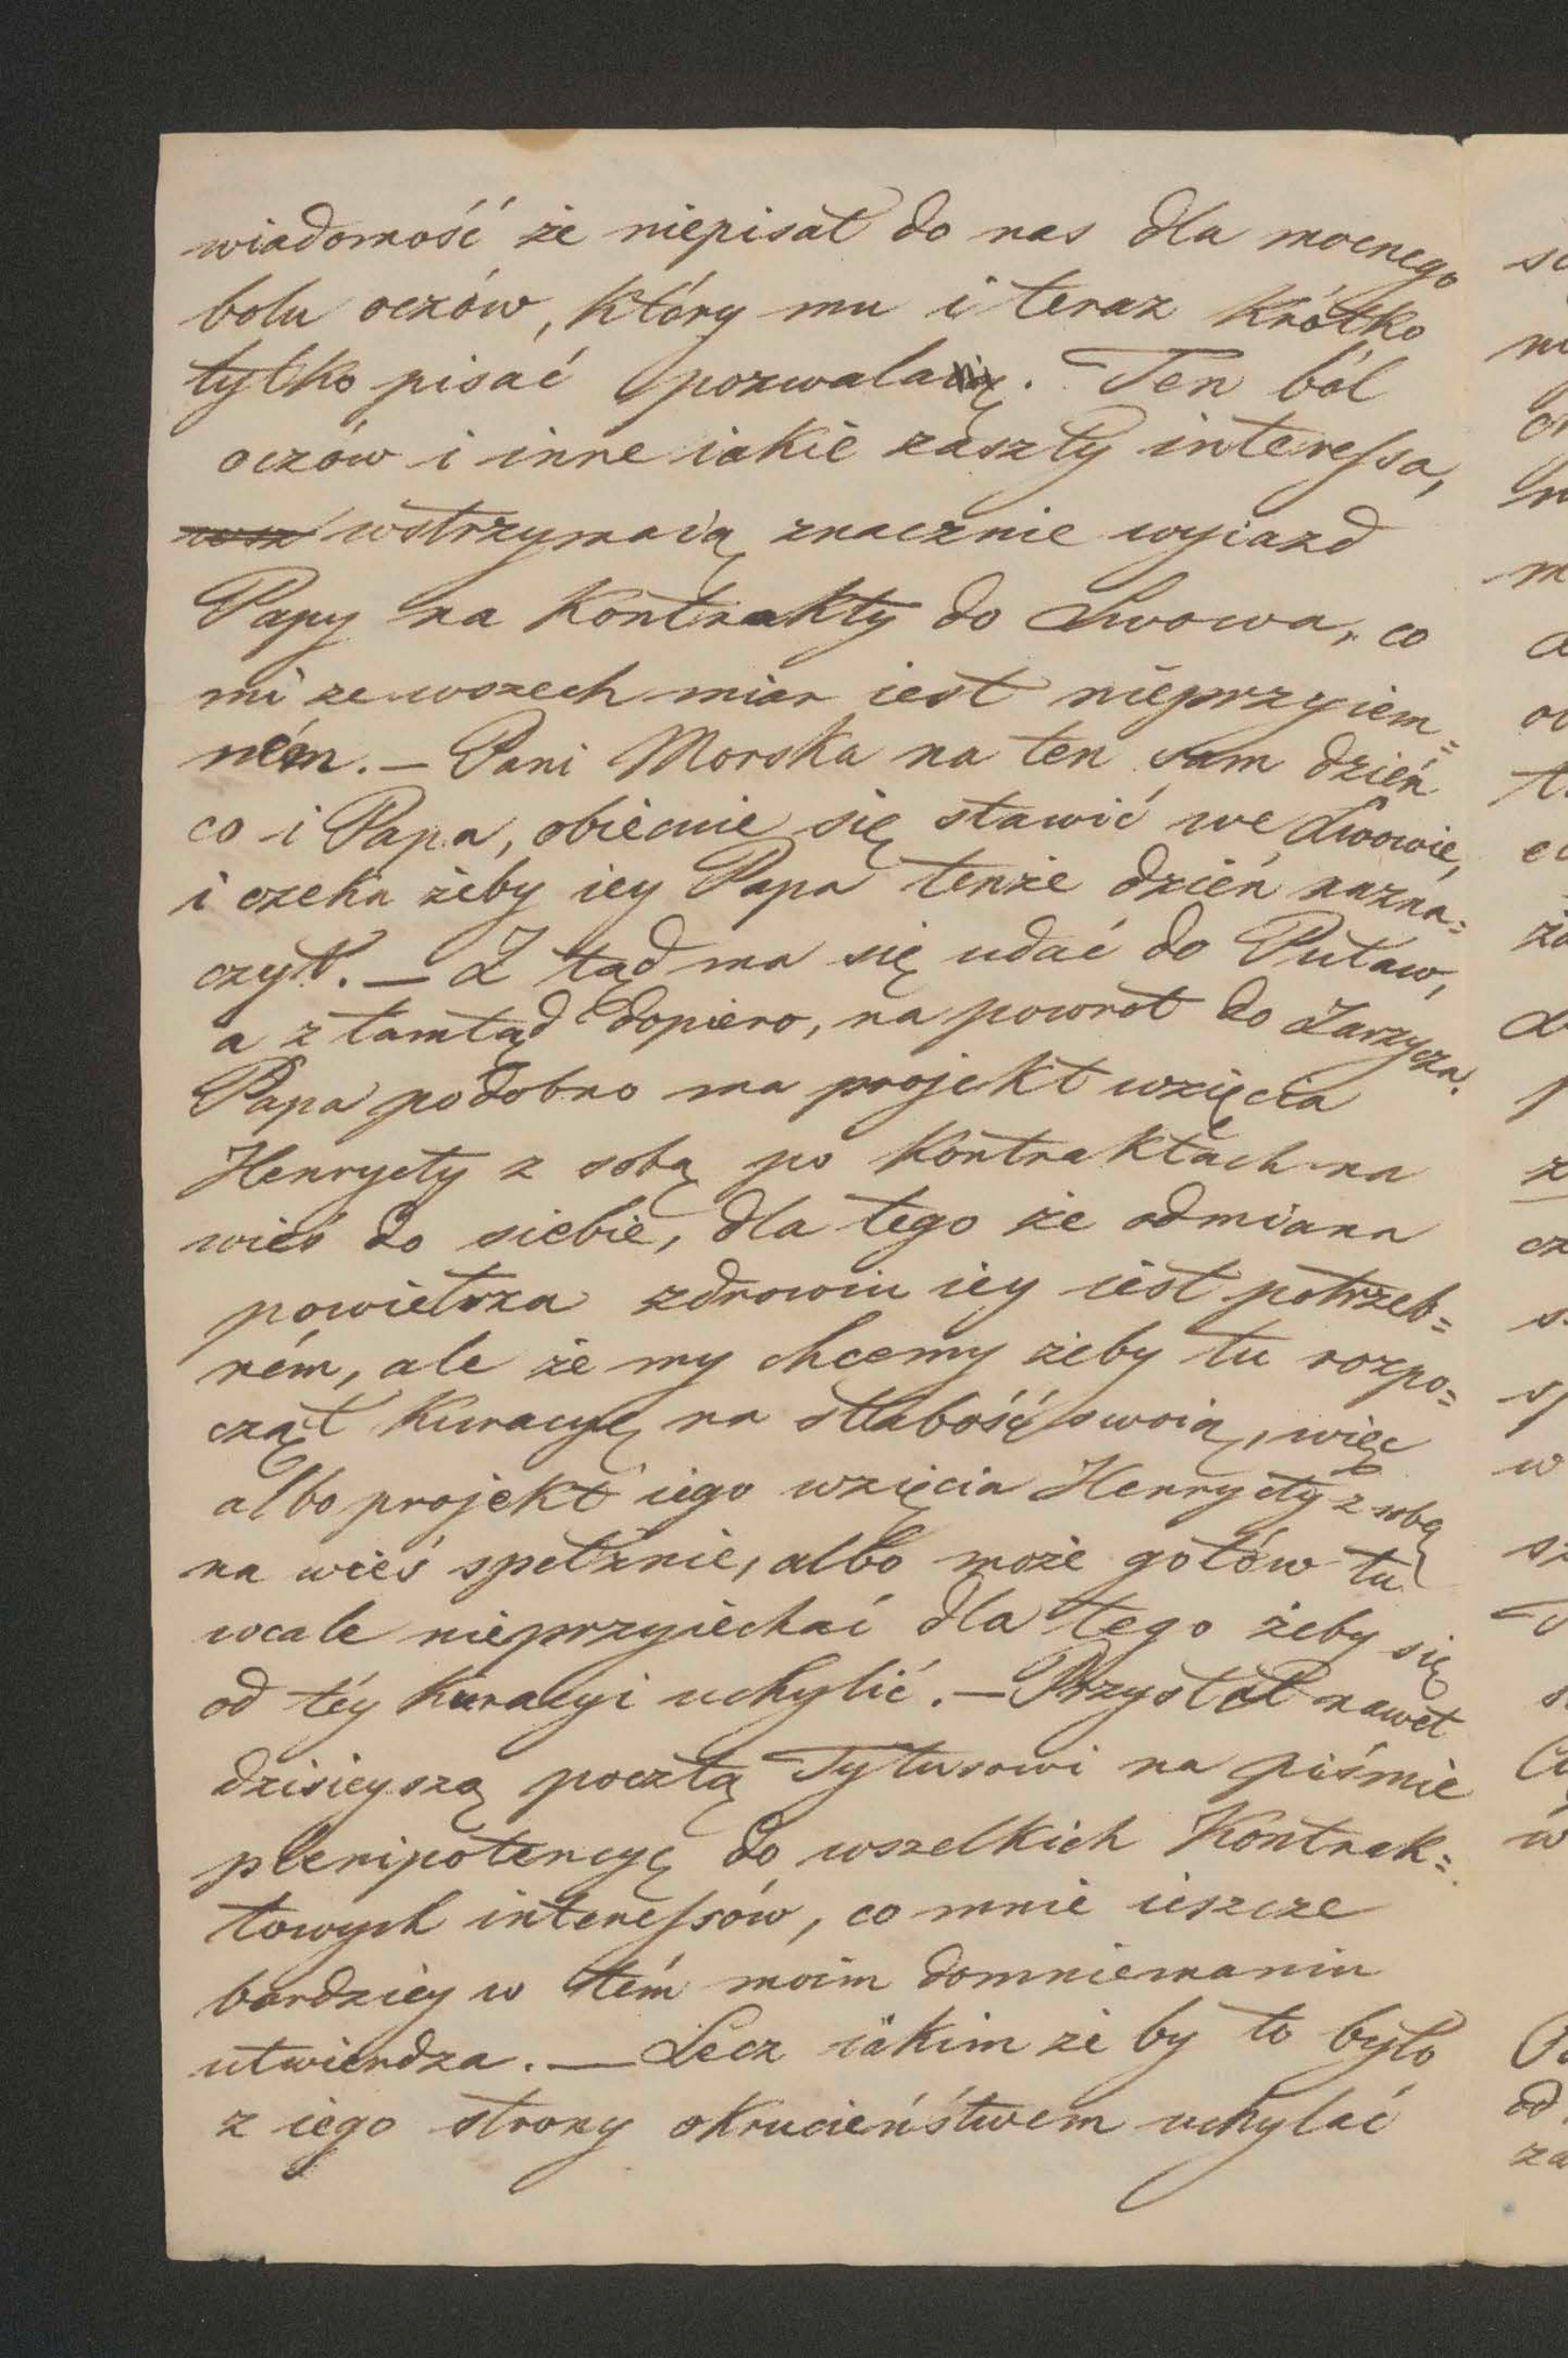 wiadomość że niepisał do nas dla mocnego
bolu oczów, który mu i teraz krótko
tylko pisać pozwala. Ten ból
oczów i inne iakie zaszły interessa,
wstrzymaią znacznie wyiazd
Papy na Kontrakty do Lwowa, co
mi ze wszech miar iest nieprzyiem=
ném. — Pani Morska na ten sam dzień
co i Papa, obiecuie się stawić we Lwowie,
i czeka żeby iey Papa tenże dzień nazna=
czył. — Z tąd ma się udać do Puław,
a z tamtąd dopiero, na powrot do Zarzycza.
Papa podobno ma projekt wzięcia
Henryety z sobą po Kontraktach na
wieś do siebie, dla tego że odmiana
powietrza zdrowiu iey iest potrzeb=
ném, ale że my chcemy żeby tu rozpo=
czął Kuracyę na słabość swoią, więc
albo projekt iego wzięcia Henryety z sobą
na wieś spełznie, albo może gotów tu
wcale nieprzyiechać dla tego żeby się
od téy Kuracyi uchylić. — Przysłał nawet
dzisieyszą pocztą Tytusowi na piśmie
plenipotencyę do wszelkich Kontrak=
towych interessów, co mnie ieszcze
bardziey w tém moim domniemaniu
utwierdza. — Lecz iakim że by to było
z iego strony okrucieństwem uchylać